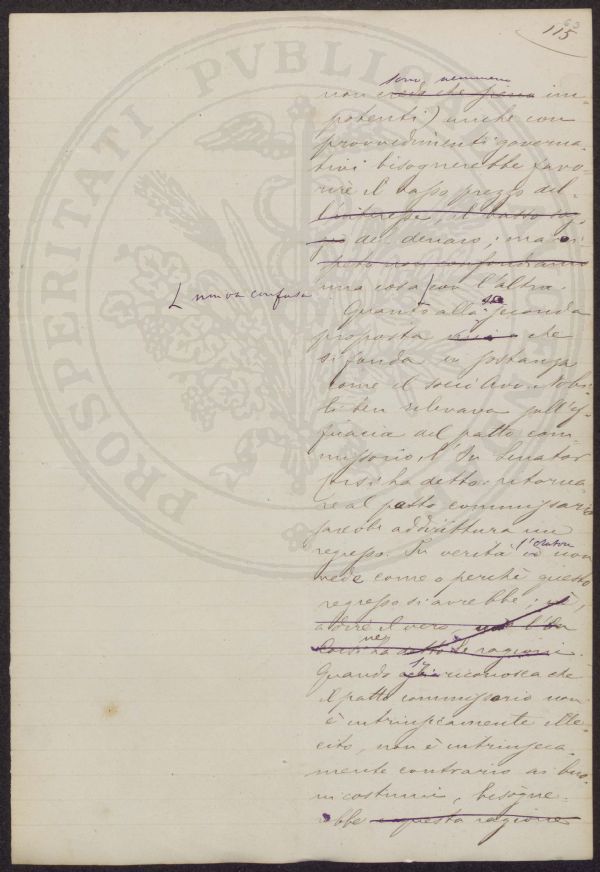 115
sono nemmeno
non credo che siano im-
potenti) anche con
provvedimenti governa-
tivi bisognerebbe favo-
rire il basso prezzo del-
l'interesse, il basso
del denaro; ma
non confondiamo
una cosa con l'altra.
non va confusa
Quando alla seconda
proposta che
si fonda in sostanza
come il socio Avv. Nobi-
li ben rilevava sull'ef-
ficacia del patto com-
missorio, l'On. Senator
Corsi ha detto: ritorna-
re al patto commissorio
sarebbe addirittura un
regresso. In verità l'oratore non
vede come o perché questo
regresso si avrebbe; nè,
a dire il vero, l'On.
Corsi ha detto le ragioni.
Quando si riconosca che
il patto commissorio non
è intrinsecamente ille-
cito, non è intrinseca-
mente contrario ai buo-
ni costumi, bisogne-
rebbe questa ragione
PROSPERITATI PVBLICAE